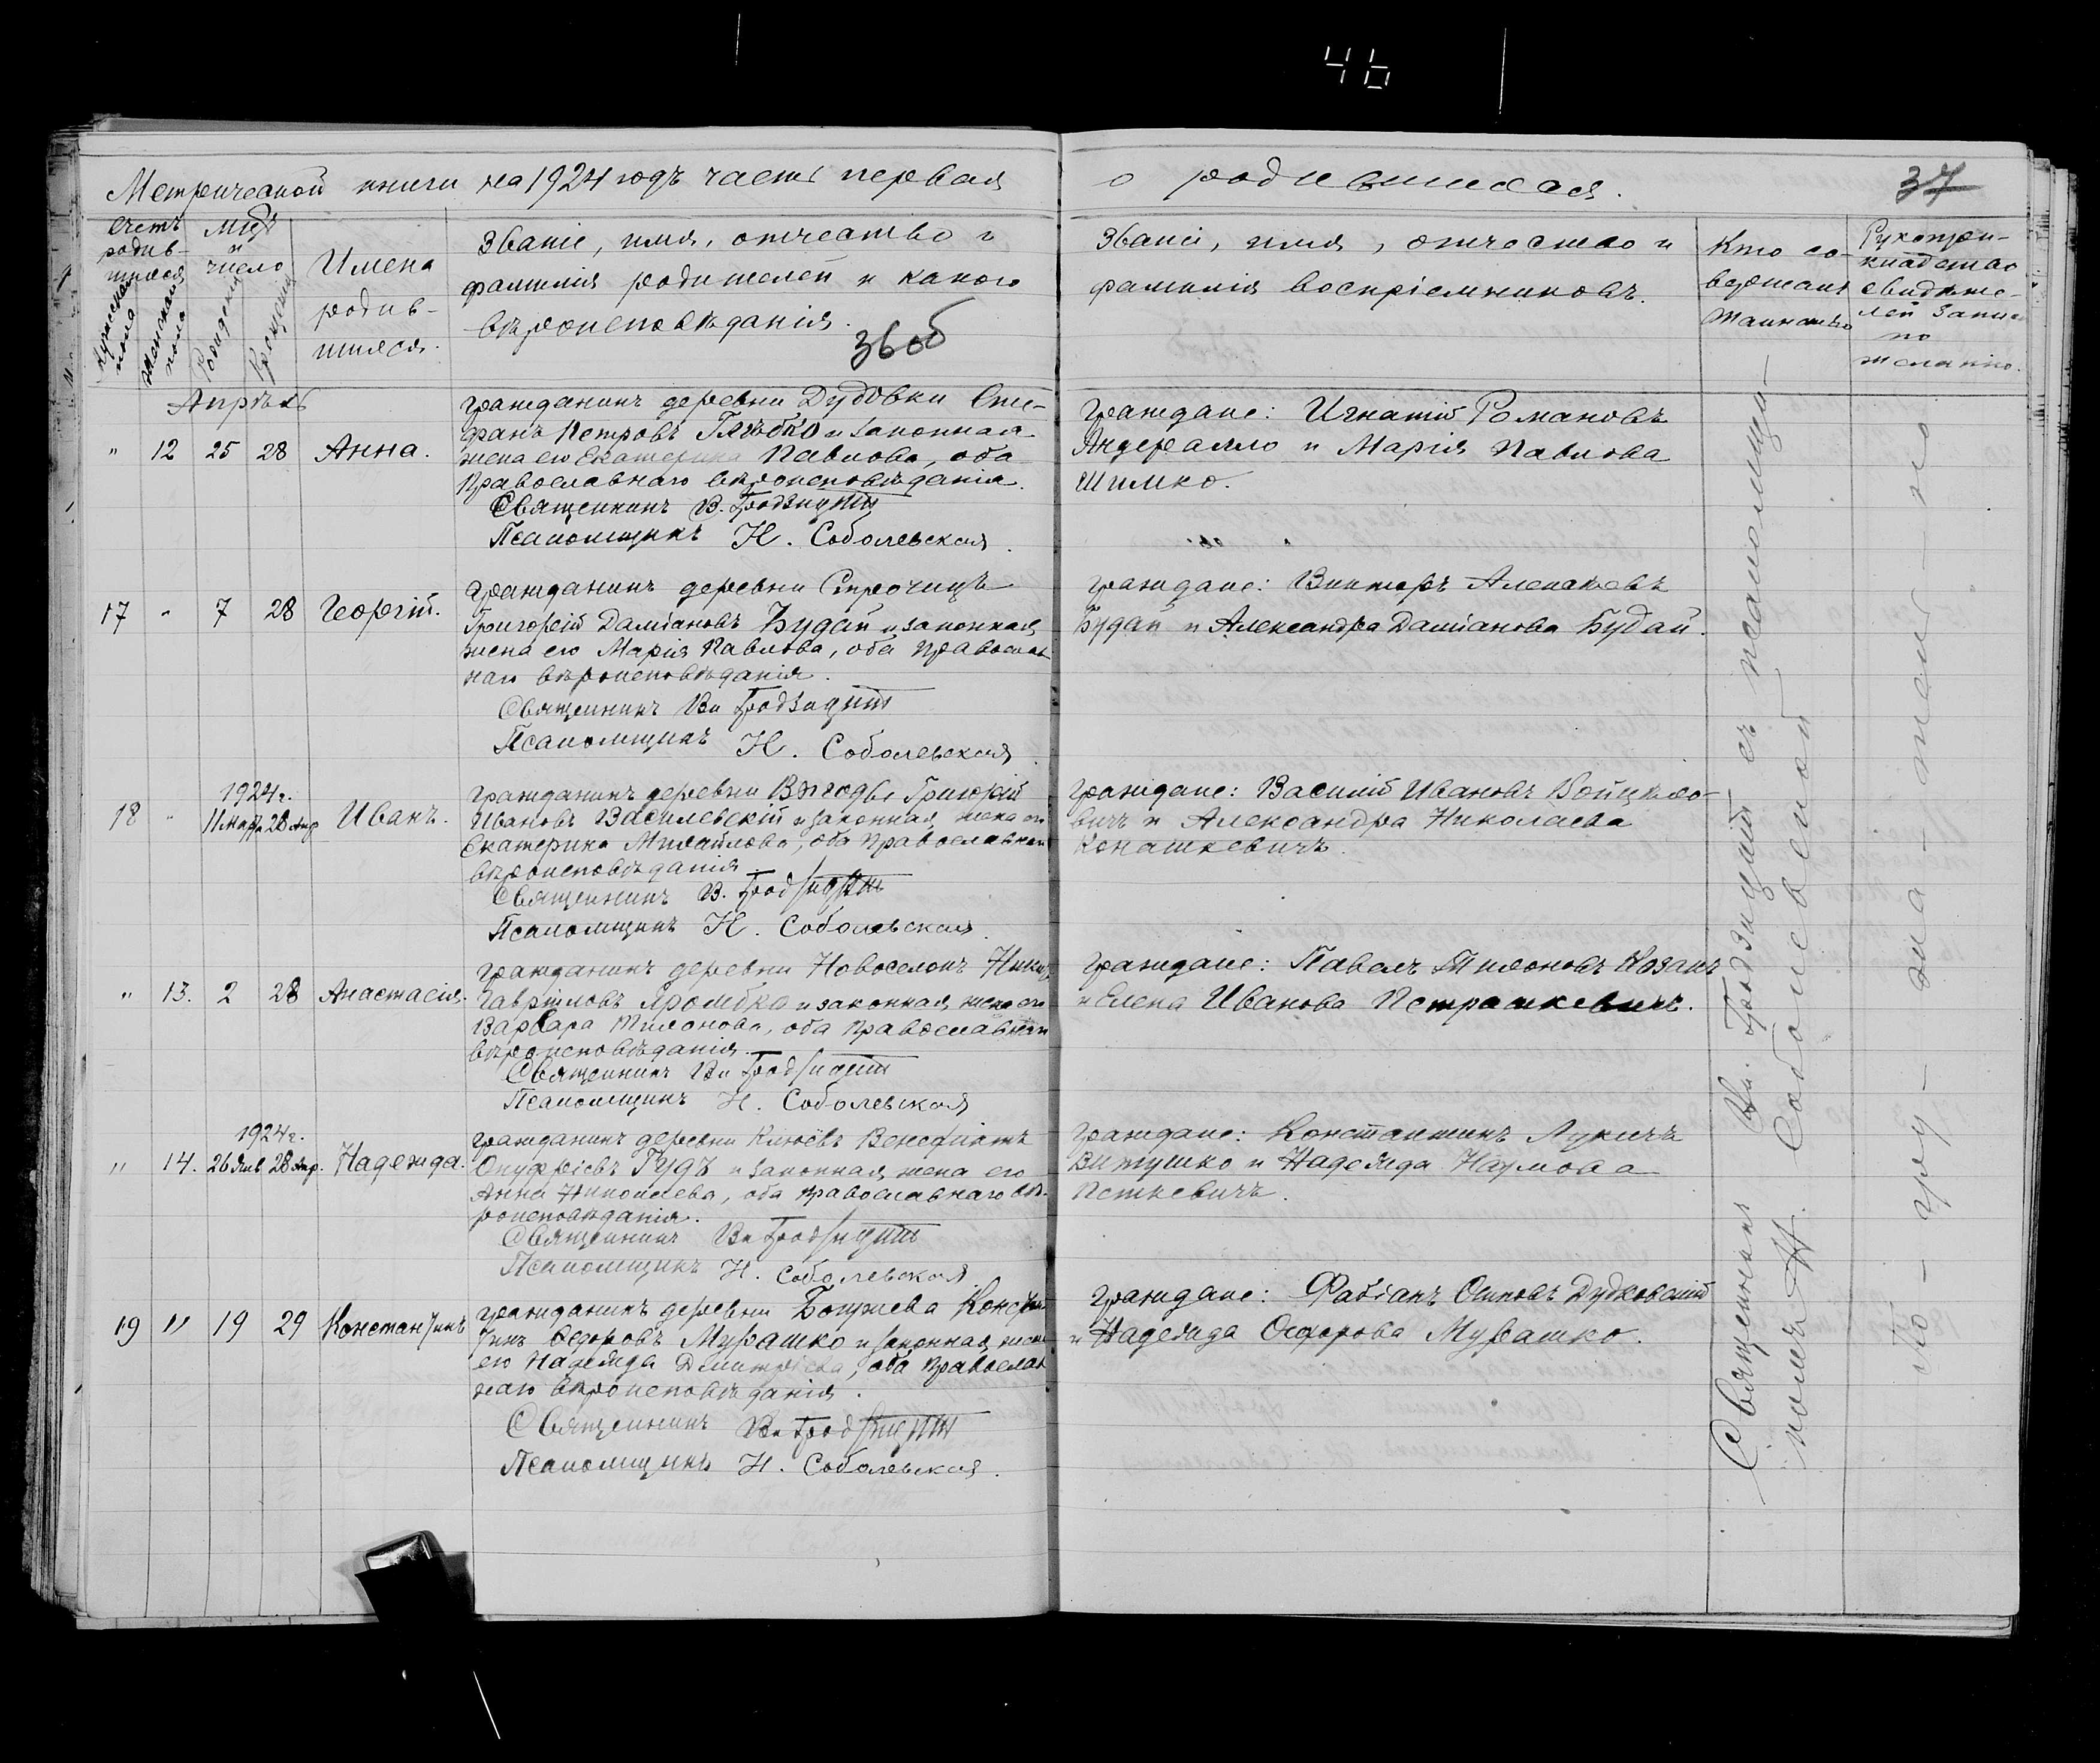 46
Метрической книги на 1924 годъ часть первая
о родившихся.
37
Счетъ родившихся
Мужескаго пола
Женскаго пола
Мѣсяцъ и число
Рожденія
Крещенія
Имена
родив-
шихся.
Званіе, имя, отчество и
фамилія родителей и какого
вѣроисповѣданія.
36 об
Званіе, имя, отчество и
фамилія воспріемниковъ.
Кто со-
вершалъ
таинство
Рукопри-
кладство
свидѣте-
лей записи
по
желанію.
Апрѣль
" 12 25 28 Анна.
Гражданинъ деревни Дудовки Сте-
фанъ Петровъ Глѣбко и законная
жена его Екатерина Павлова, оба
Православнаго вѣроисповѣданія.
Священникъ В. Гродзицкій
Псаломщикъ Н. Соболевская.
Граждане: Игнатій Романовъ
и Марія Павлова
Шимко.
17 " 7 28 Георгій.
Гражданинъ деревни
Григорій Даміановъ Будай и законная
жена его Марія Павлова, оба православ-
наго вѣроисповѣданія.
Священникъ Вл Гродзицкій
Псаломщикъ Н. Соболевская.
Граждане: Викторъ Алексѣевъ
Будай и Александра Даміанова Будай.
1924 г.
18 " 11 Мар. 28 Апр Иванъ.
Гражданинъ деревни Григорій
Ивановъ Василевскій и законная жена его
Екатерина Михайлова, оба православнаго
вѣроисповѣданія
Священникъ В. Гродзицкій
Псаломщикъ Н. Соболевская.
Граждане: Василій Ивановъ Войцѣхо-
вичъ и Александра Николаева
Конашкевичъ.
" 13. 2 28 Анастасія.
Гражданинъ деревни Новоселокъ
Гавріиловъ Яромбко и законная жена его
Варвара Тихонова, оба православнаго
вѣроисповѣданія.
Священникъ Вл Гродзицкій
Псаломщикъ Н. Соболевская
Граждане: Павелъ Тихоновъ Козакъ
и Елена Иванова Петрашкевичъ.
1924 г.
" 14. 26 Янв 28 Апр. Надежда.
Гражданинъ деревни
Онуфріевъ Гудъ и законная жена его
Анна Николаева, оба православнаго вѣ-
роисповѣданія.
Священникъ Вл Гродзицкій
Псаломщикъ Н. Соболевская.
Граждане: Константинъ Лукичъ
Витушко и Надежда Наумова
Петкевичъ.
19 " 19 29 Константинъ
Гражданинъ деревни Констан-
тинъ Ѳедоровъ Мурашко и законная жена
его Надежда Димитріева, оба православ-
наго вѣроисповѣданія.
Священникъ Вл Гродзицкій
Псаломщикъ Н. Соболевская.
Граждане: Фабіанъ Осиповъ Дудковскій
и Надежда Мурашко.
Священникъ Вл. Гродзицкій съ псаломщи-
Н. Соболевской